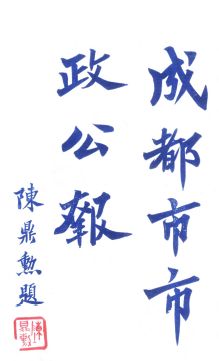 成都市市
政公報
陳鼎勲題